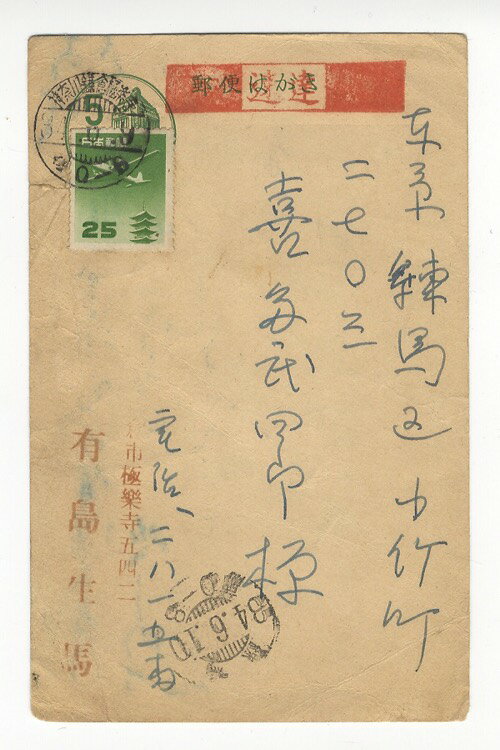 郵便はがき
速達
5
日本郵便
25
東京練馬区小竹町
二七〇三
喜多武四郎様
34.6.10
電話、二八一五番
市極樂寺五四二
有島生馬